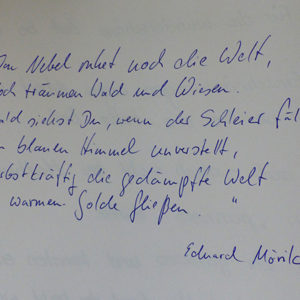 Im Nebel ruhet noch die Welt,
noch träumen Wald und Wiesen.
bald siehst Du, wenn der Schleier fäl
n blauen Himmel unverstellt,
rbstkräftig die gedämpfte Welt
warmen Golde fließen. "
Eduard Mörik